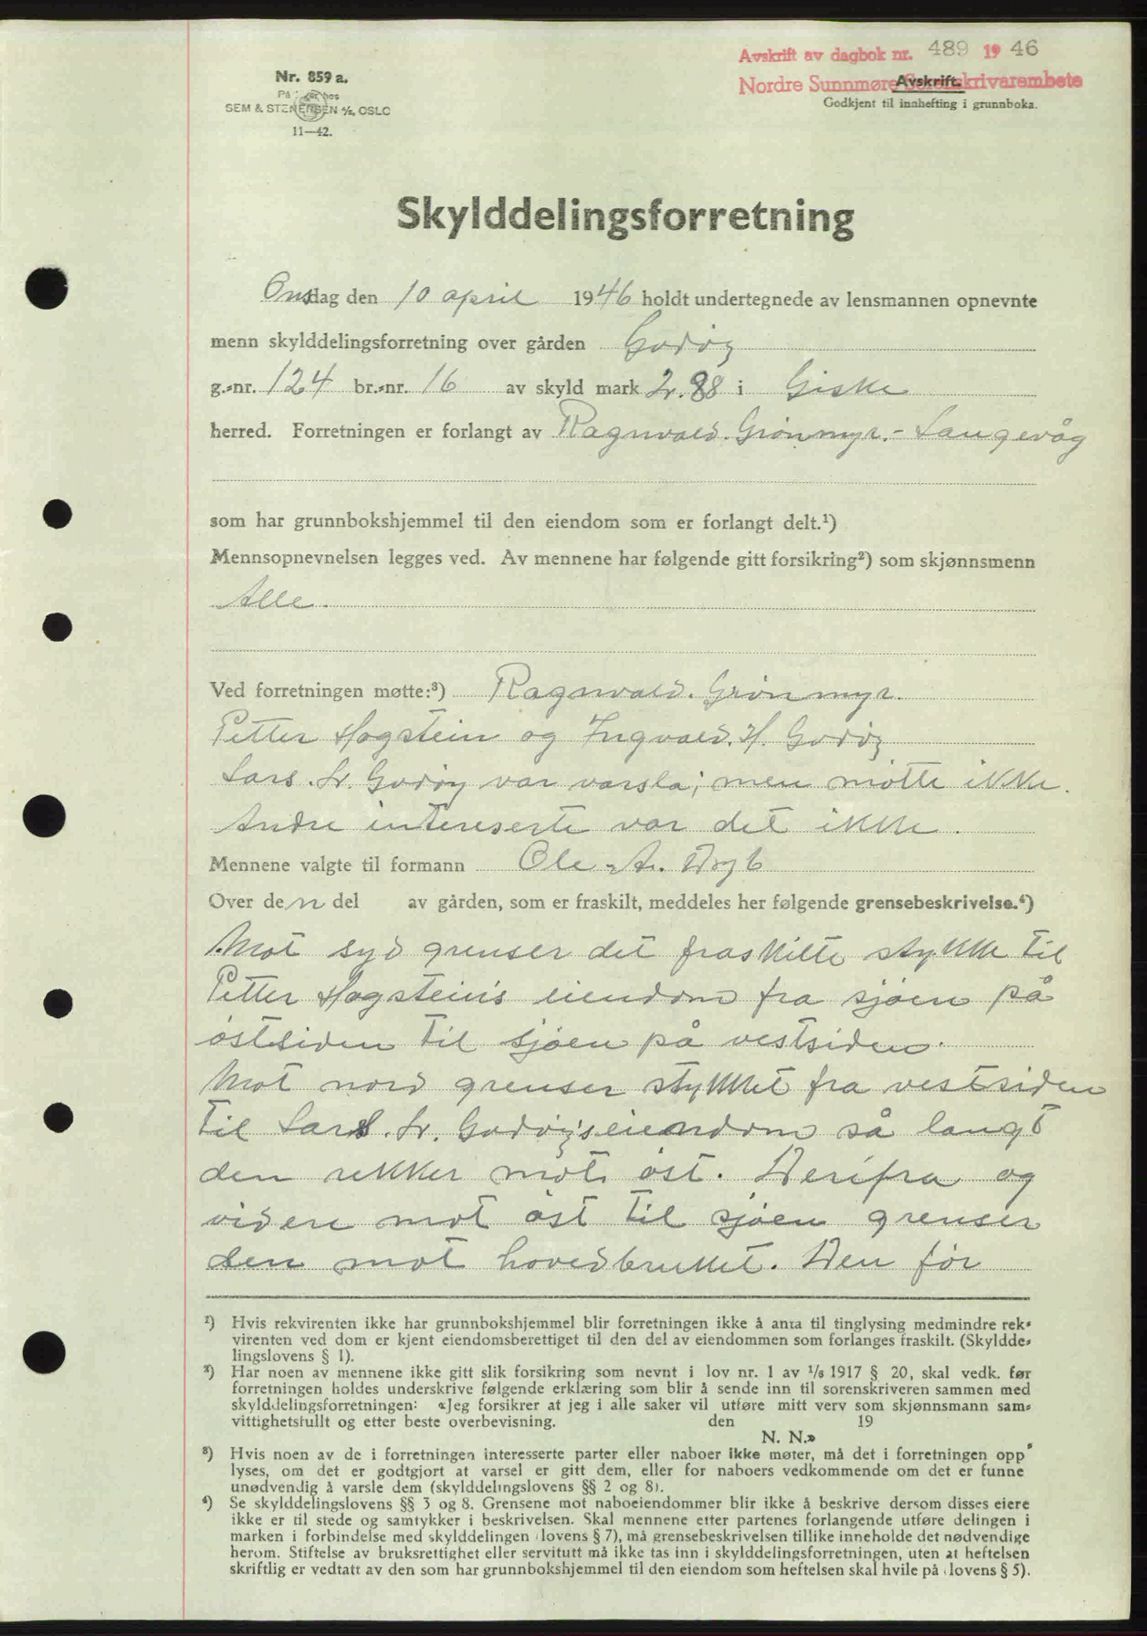 Avskrift av dagbok nr. 489 1946
Nordre Sunnmøre Sorenskrivarembete
Avskrift.
Godkjent til innhefting i grunnboka.
Nr. 859 a.
På lager hos
SEM & STENERSEN A/S, OSLO
11—42.
Skylddelingsforretning
Onsdag den 10 april 1946 holdt undertegnede av lensmannen opnevnte
menn skylddelingsforretning over gården Godøy
g.-nr. 124 br.-nr. 16 av skyld mark 2.88 i Giske
herred. Forretningen er forlangt av Ragnvald. Grønmyr. - Langevåg
som har grunnbokshjemmel til den eiendom som er forlangt delt.¹)
Mennsopnevnelsen legges ved. Av mennene har følgende gitt forsikring²) som skjønnsmenn
Alle.
Ved forretningen møtte:³) Ragnvald. Grønmyr.
Petter Hogstein og Ingvald. H. Godøy
Lars. L. Godøy var varsla; men møtte ikke.
Andre intereserte var det ikke.
Mennene valgte til formann Ole A.
Over den del av gården, som er fraskilt, meddeles her følgende grensebeskrivelse.⁴)
Mot syd grenser det fraskilte stykke til
Petter Hogstein's eiendom fra sjøen på
østsiden til sjøen på vestsiden.
Mot nord grenser stykket fra vestsiden
til Lars. L. Godøy's eiendom så langt
den rekker mot øst. Derifra og
videre mot øst til sjøen grenser
den mot hovedbruket. Den før
¹) Hvis rekvirenten ikke har grunnbokshjemmel blir forretningen ikke å anta til tinglysing medmindre rek-
virenten ved dom er kjent eiendomsberettiget til den del av eiendommen som forlanges fraskilt. (Skyldde-
lingslovens § 1).
²) Har noen av mennene ikke gitt slik forsikring som nevnt i lov nr. 1 av 1/6 1917 § 20, skal vedk. før
forretningen holdes underskrive følgende erklæring som blir å sende inn til sorenskriveren sammen med
skylddelingsforretningen: «Jeg forsikrer at jeg i alle saker vil utføre mitt verv som skjønnsmann sam-
vittighetsfullt og etter beste overbevisning. den 19
N. N.»
³) Hvis noen av de i forretningen interesserte parter eller naboer ikke møter, må det i forretningen opp-
lyses, om det er godtgjort at varsel er gitt dem, eller for naboers vedkommende om det er funne
unødvendig å varsle dem (skylddelingslovens §§ 2 og 8).
⁴) Se skylddelingslovens §§ 3 og 8. Grensene mot naboeiendommer blir ikke å beskrive dersom disses eiere
ikke er til stede og samtykker i beskrivelsen. Skal mennene etter partenes forlangende utføre delingen i
marken i forbindelse med skylddelingen (lovens § 7), må grensebeskrivelsen tillike inneholde det nødvendige
herom. Stiftelse av bruksrettighet eller servitutt må ikke tas inn i skylddelingsforretningen, uten at heftelsen
skriftlig er vedtatt av den som har grunnbokshjemmel til den eiendom som heftelsen skal hvile på (lovens § 5).